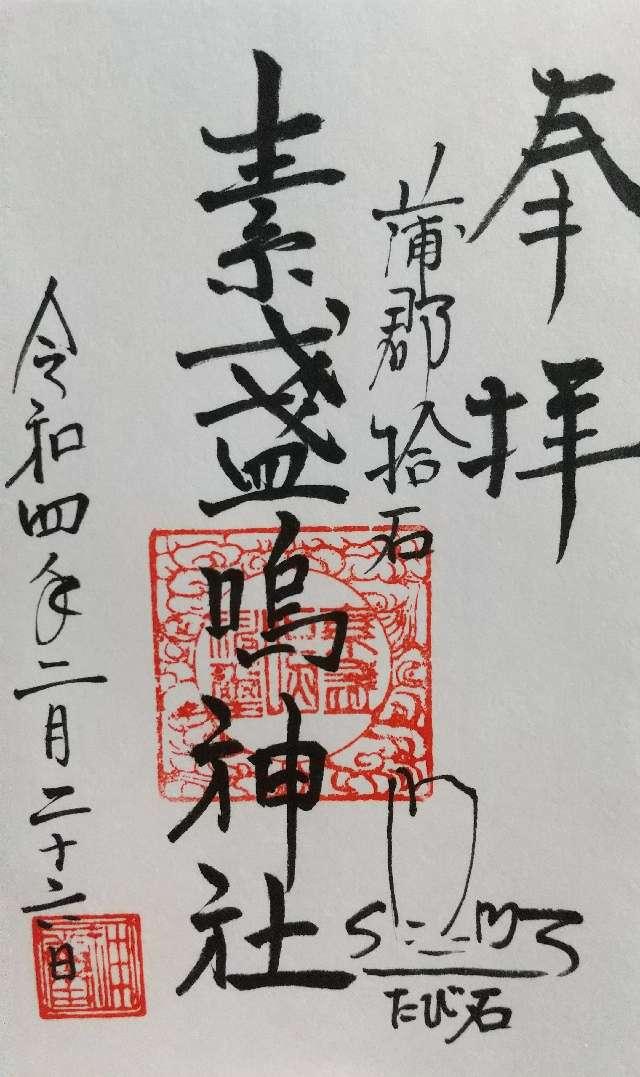 奉拝
蒲郡拾石
素盞嗚神社
令和四年二月二十六日
たび石